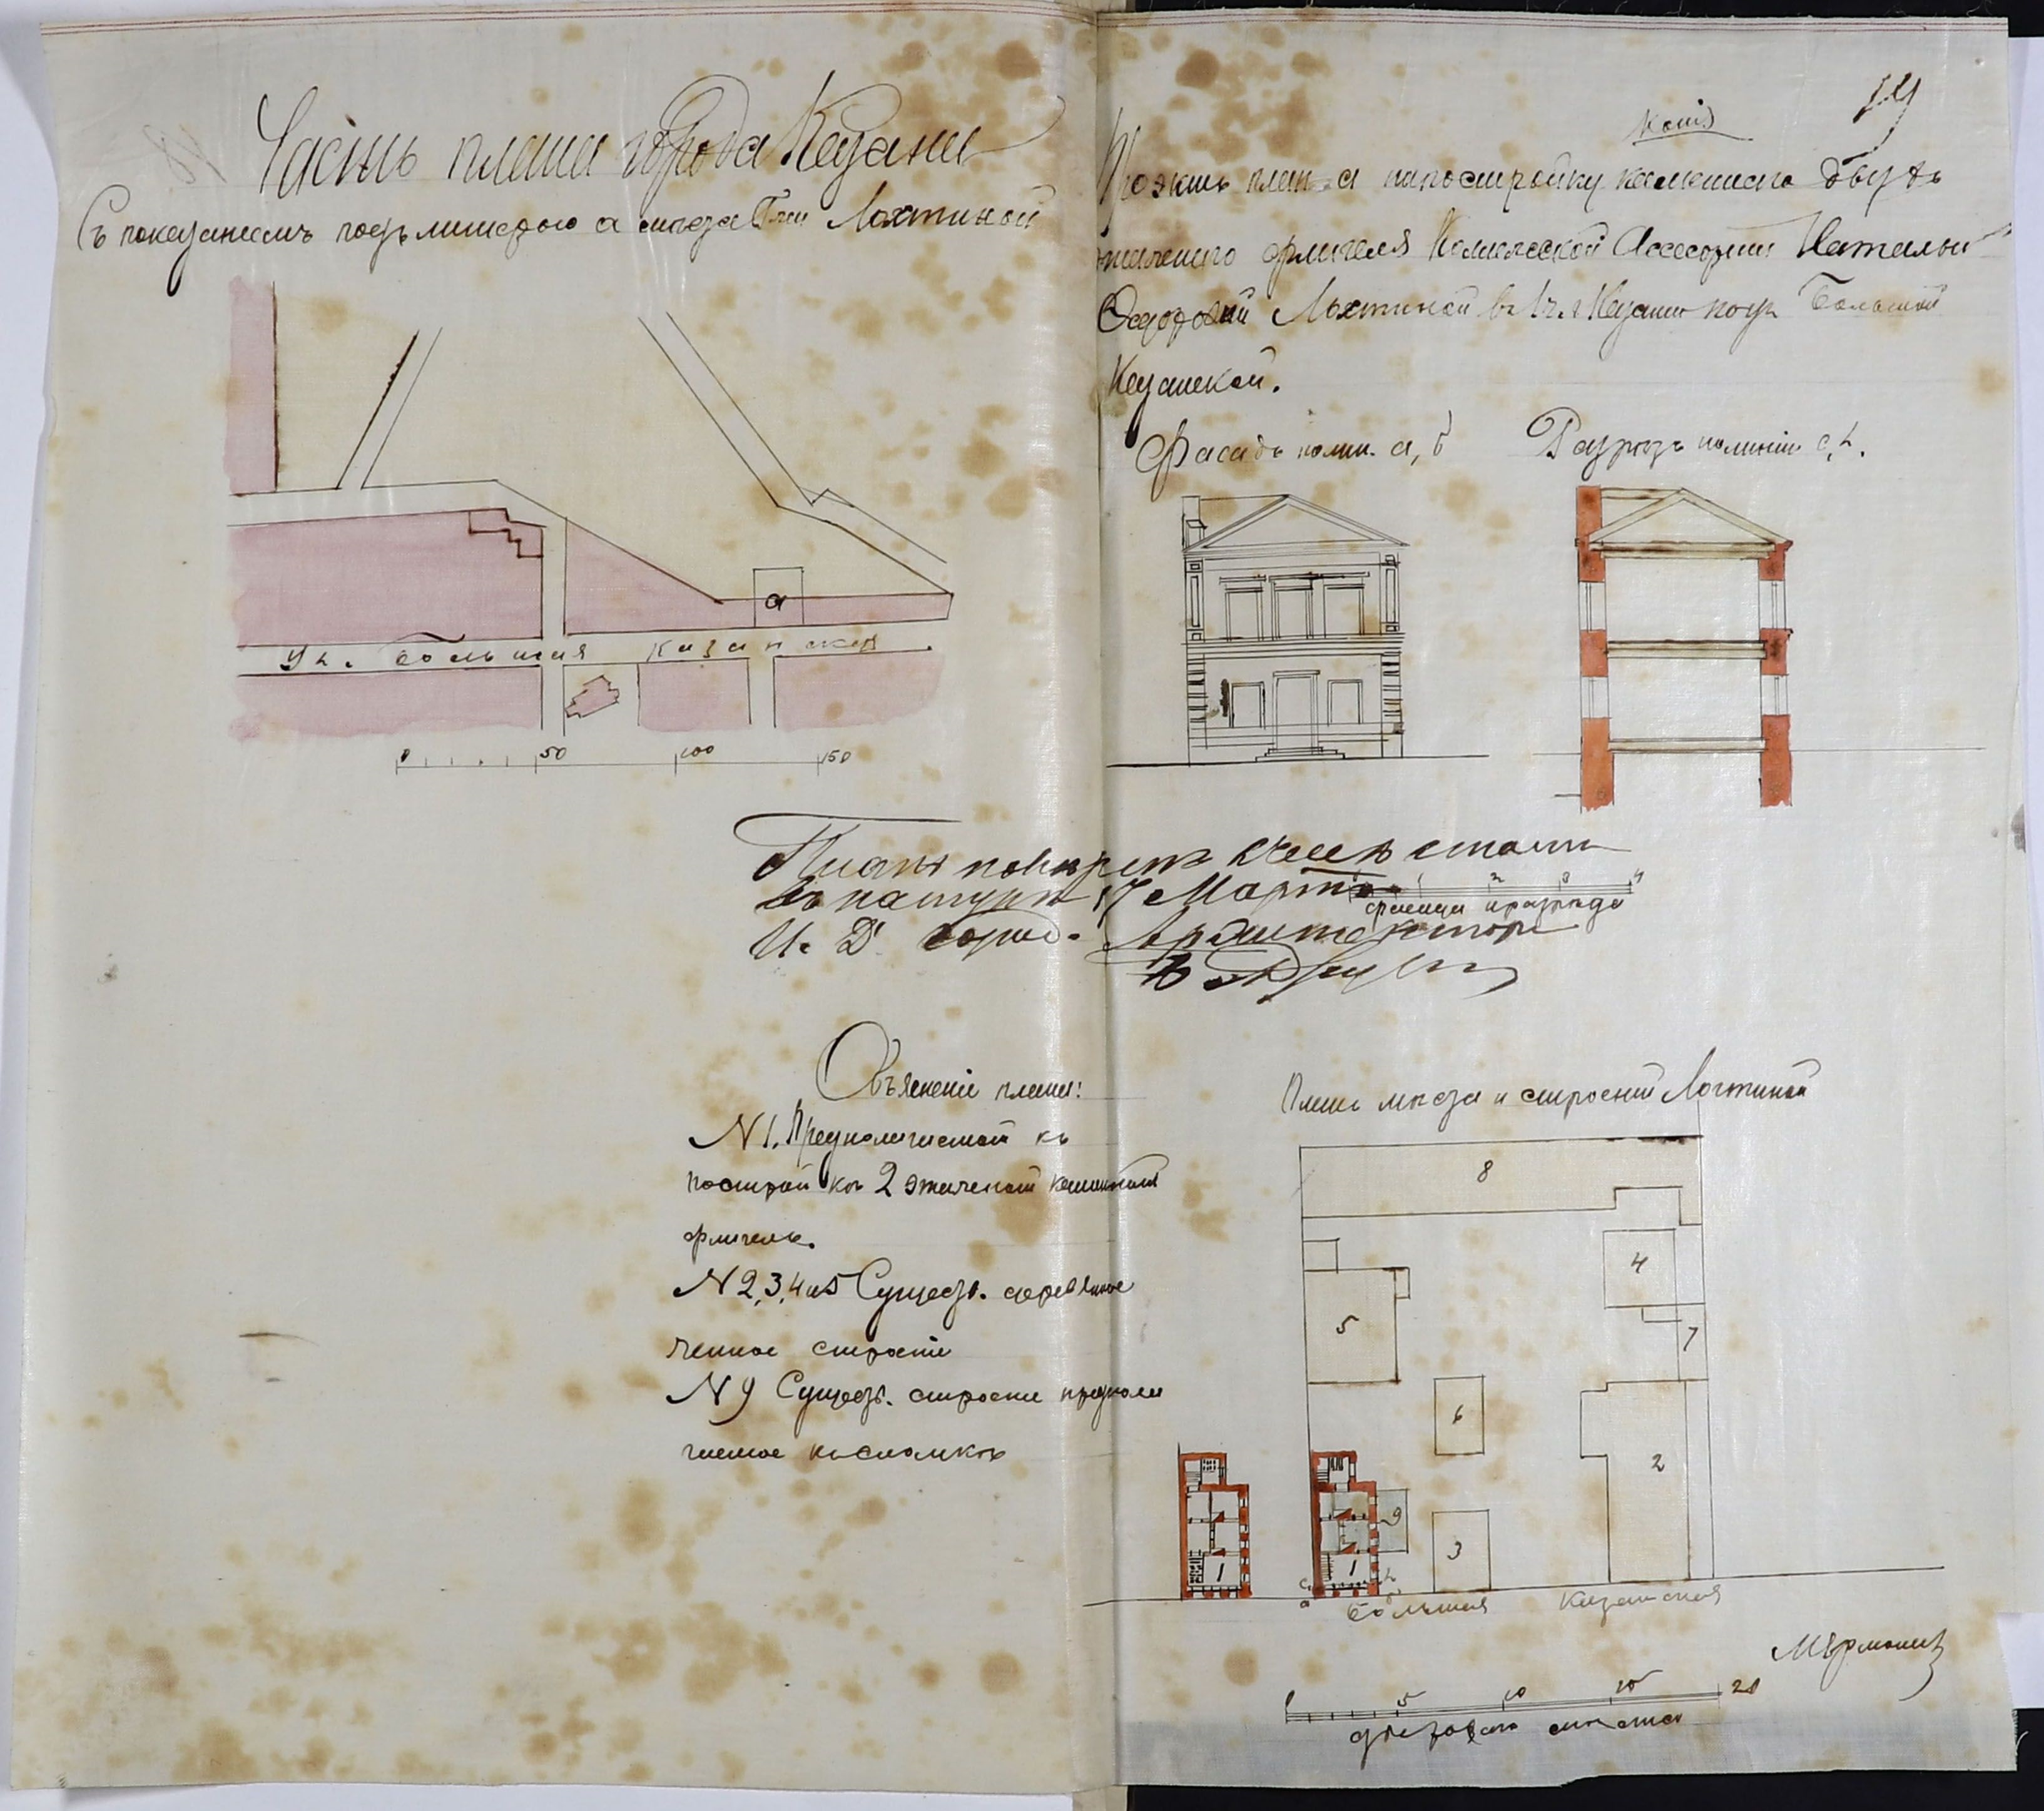 Часть плана города Казани
Съ показаніемъ подъ литерою а места Г-жи Лохтиной
Ул. Большая Казанская
0 50 100 150
19
Копія
Проэктъ плана на постройку каменнаго двухъ
этажнаго флигеля Коллежской Ассесорши Натальи
Федоровой Лохтиной въ 1 ч. г Казани по ул Большой
Казанской.
Фасадъ по лин. а, б
Разрезъ по линіи с,
а
Планъ повѣренъ съ мѣстомъ
въ натурѣ 17 Марта
фасада и разреза
И. Д. Город. Архитектора
Объясненіе плана:
N 1. Предполагаемой къ
постройкѣ 2 этажной каменной
флигель.
N 2, 3, 4 и 5 Существ. деревянное
строеніе
N 9 Существ. строеніе предпола
гаемое къ сломкѣ
Планъ места и строеній Лохтиной
8
4
5
7
6
2
9
3
1
1
с
а
Большая Казанская
5 10 15 20